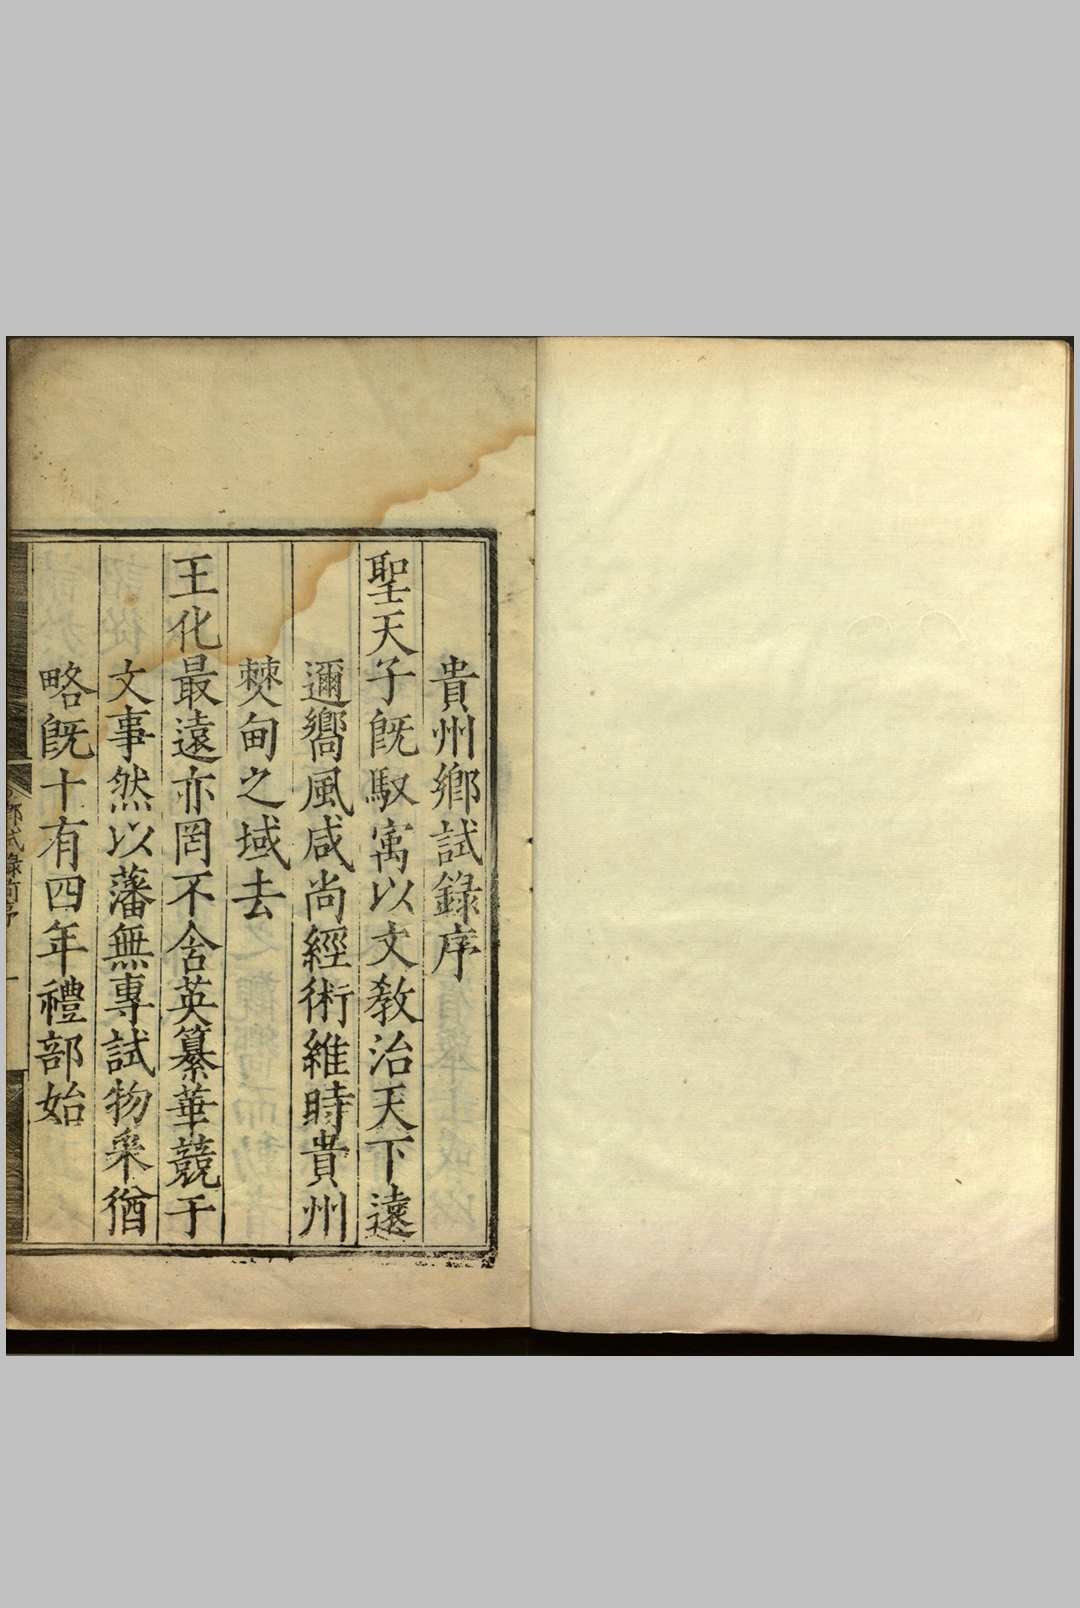 貴州鄉試錄序
聖天子既馭㝢以文敎治天下遠
邇嚮風咸尚經術維時貴州
僰甸之域去
王化最遠亦罔不含英纂華競于
文事然以藩無專試物采猶
略既十有四年禮部始
鄉試錄前序
一